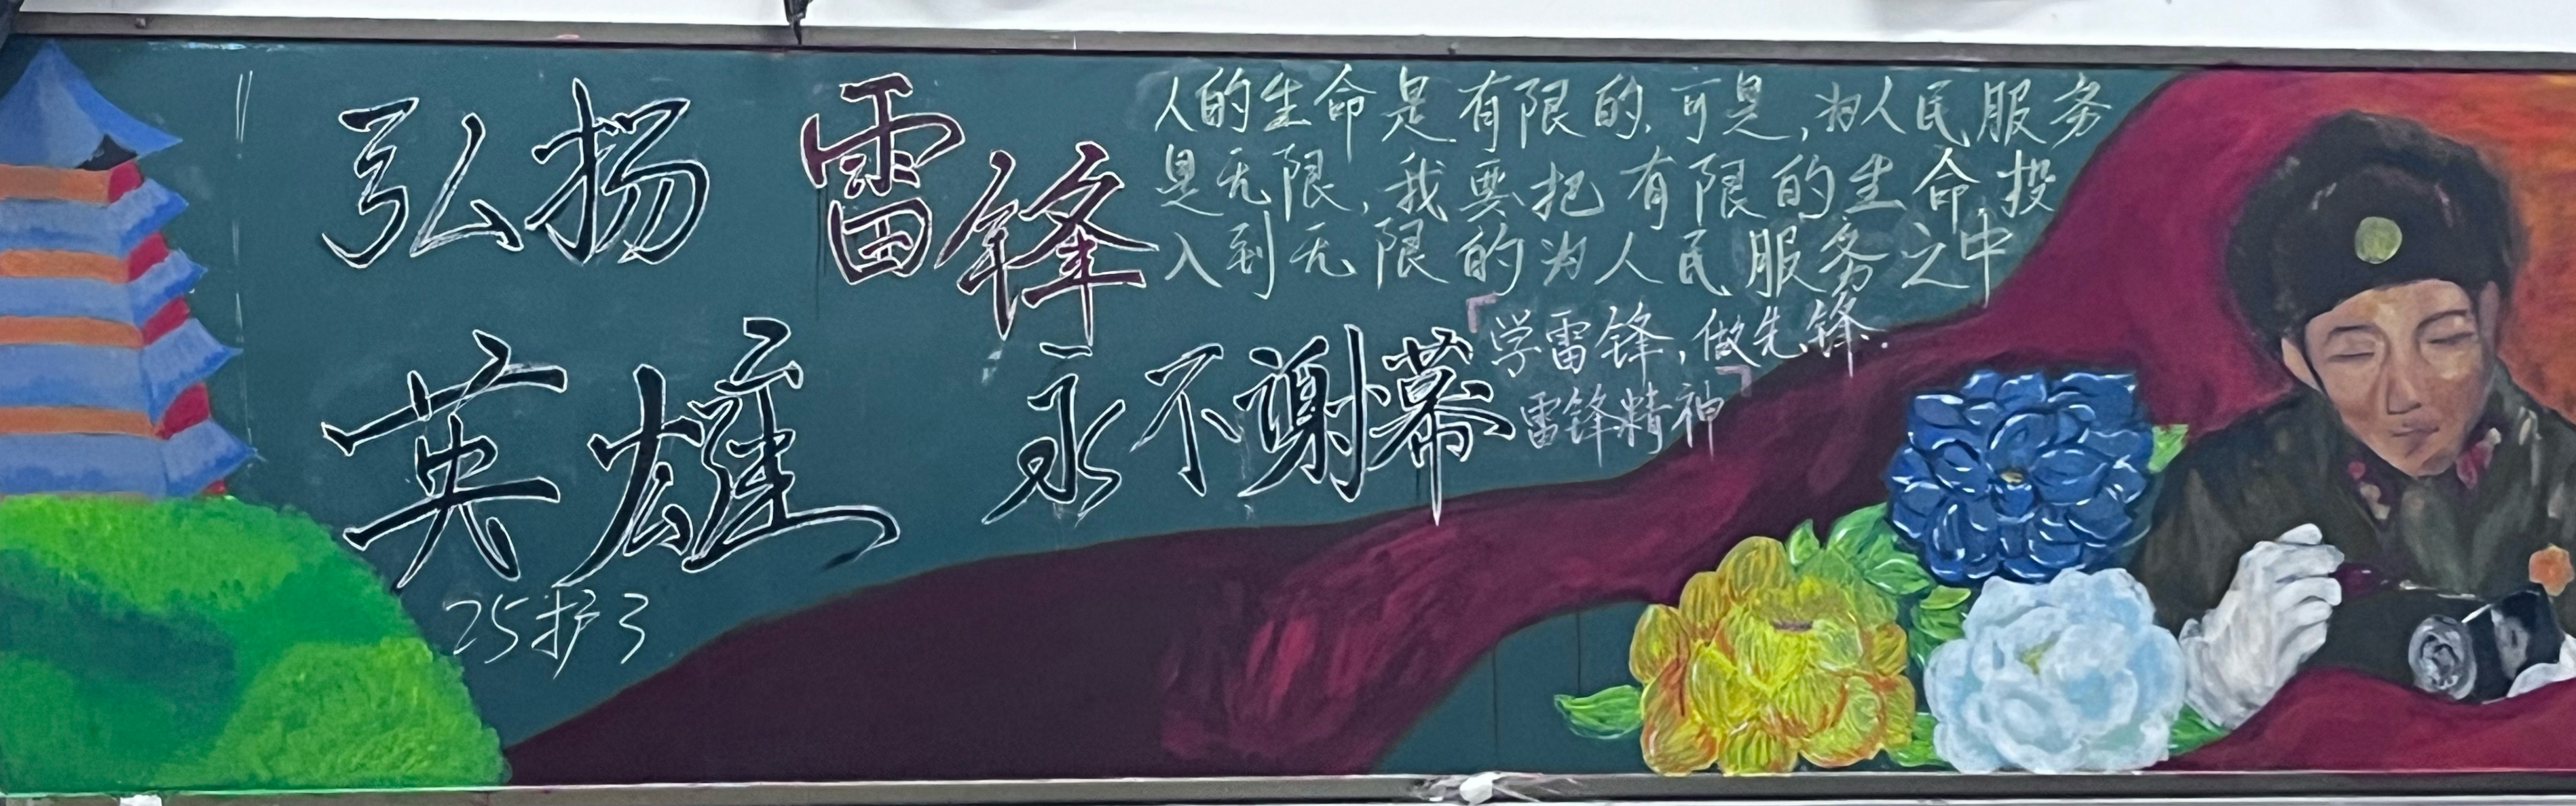 弘扬 雷锋
英雄 永不谢幕
25护3
人的生命是有限的,可是,为人民服务
是无限,我要把有限的生命投
入到无限的为人民服务之中
「学雷锋,做先锋.
雷锋精神」